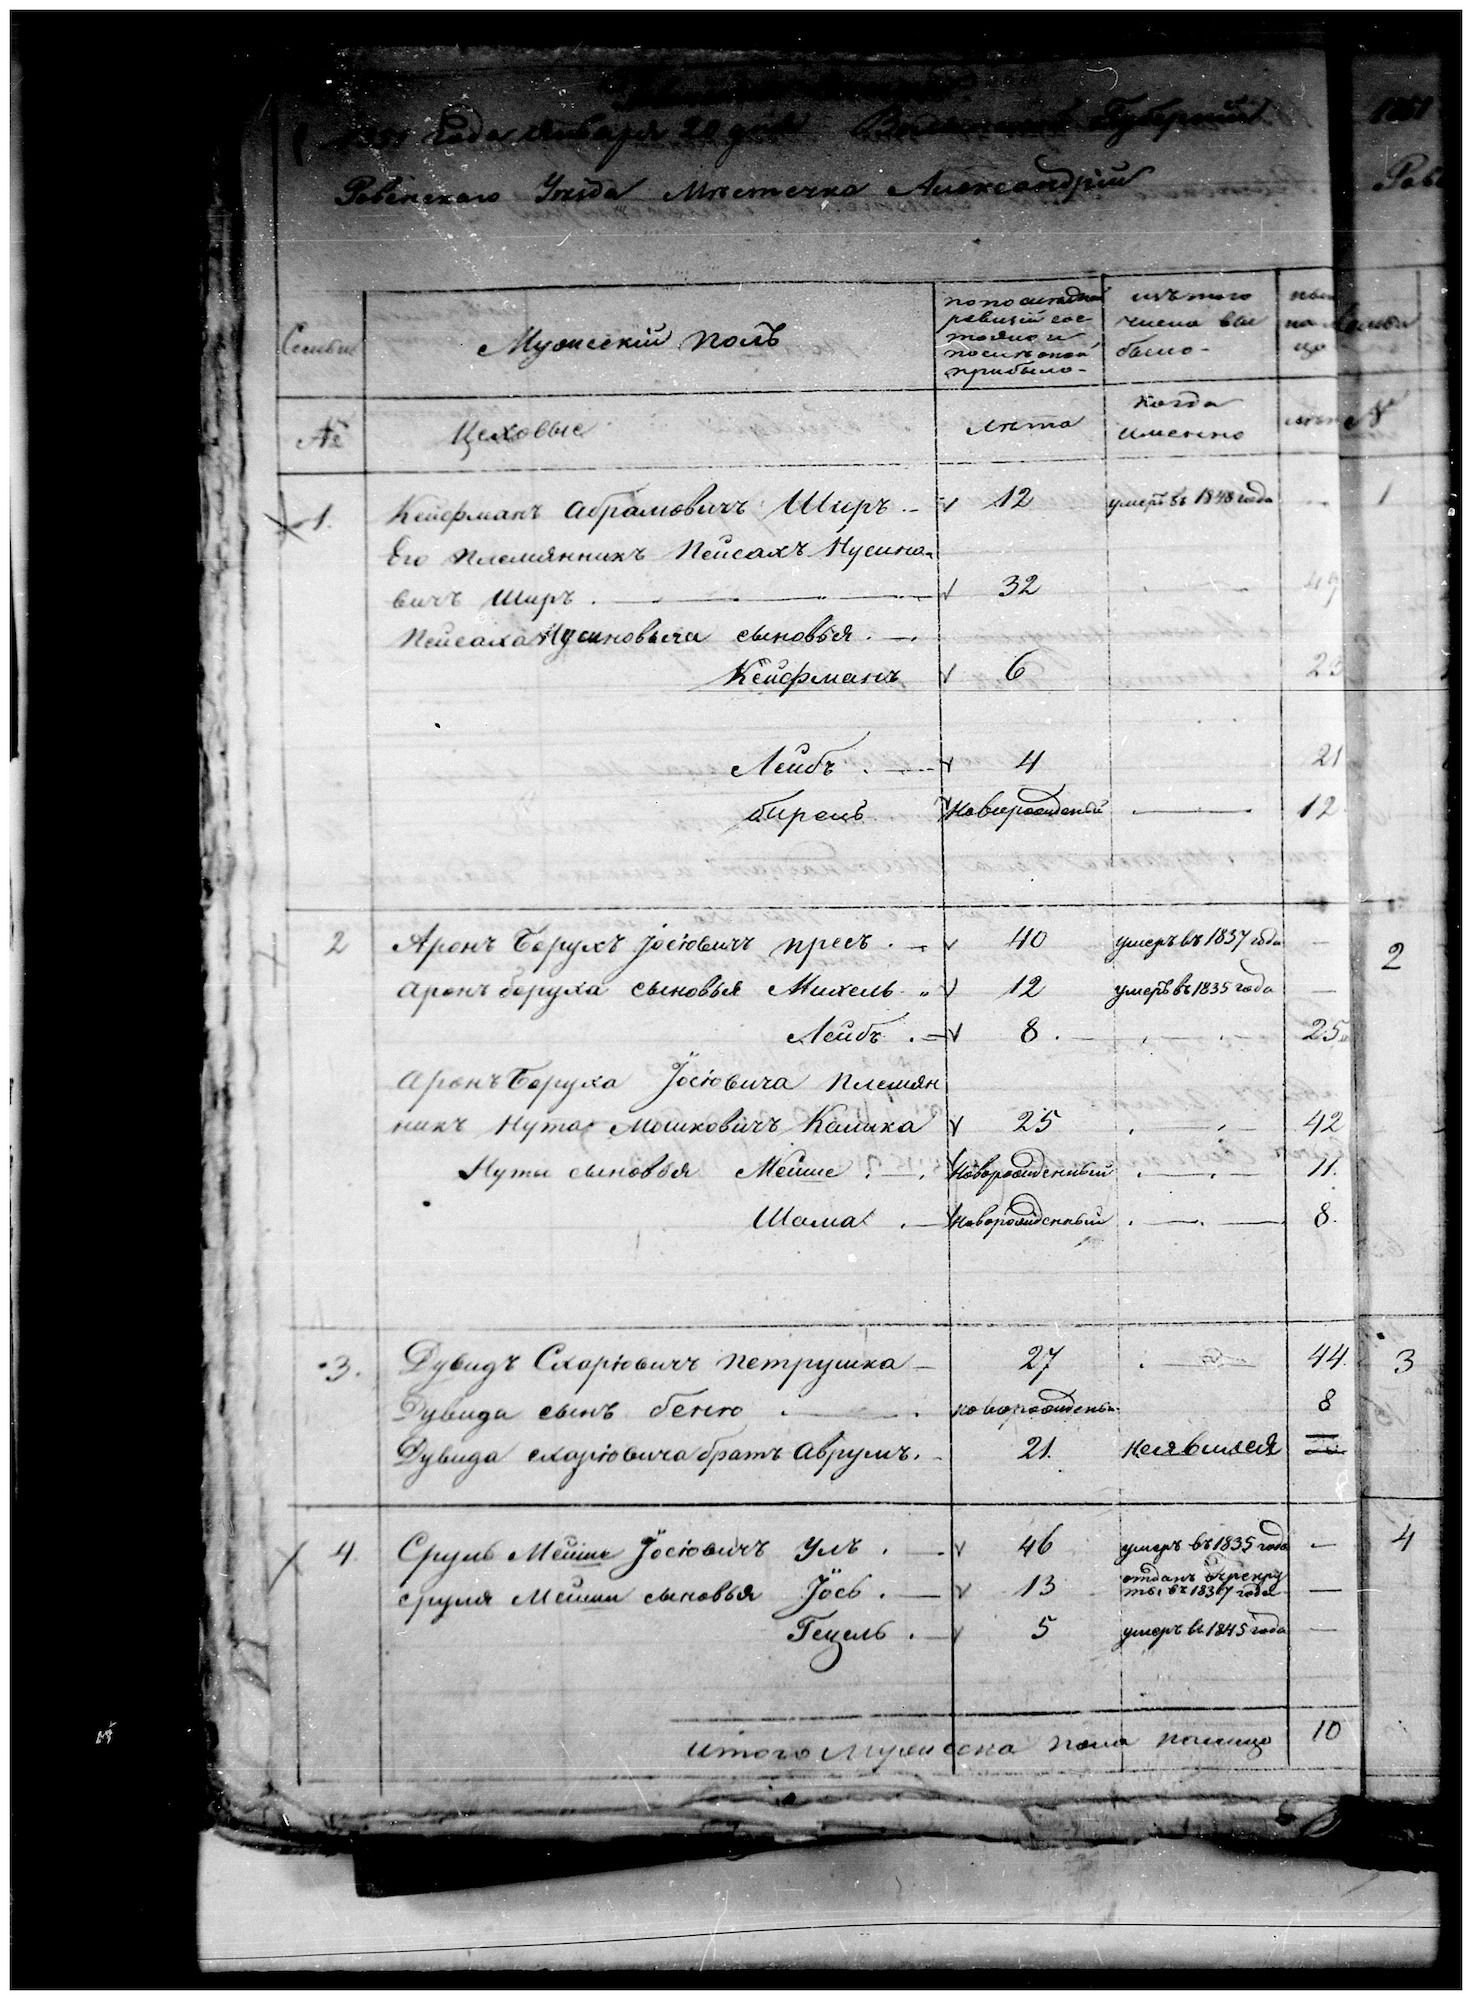 1851 Года Января 20 дня Волынской Губернии
Ровенского Уѣзда Мѣстечка Александріи
Семьи
Мужескій полъ
по последней ревизіи состояло и послѣ оной прибыло
изъ того числа выбыло
ны
на
цо
№
Цеховые
лѣта
когда именно
лѣта
№
1. Кейфманъ Абрамовичъ Ширъ 12 умеръ въ 1848 года — 1
Его племянникъ Пейсахъ Нусино-
вичъ Ширъ 32 49
Пейсаха Нусиновича сыновья
Кейфманъ 6 23
Лейбъ 4 21
Бирель Новорожденый 12
2 Аронъ Борухъ Јосіовичъ Пресъ 40 умеръ въ 1837 года — 2
Аронъ Боруха сыновья Михель 12 умеръ въ 1835 года —
Лейбъ 8 25
Аронъ Боруха Јосіовича племян
никъ Нута Мошковичъ Калика 25 42
Нути сыновья Мейше Новорожденный 11.
Шама Новорожденный 8.
3. Дувидъ Схаріовичъ Петрушка 27 44. 3
Дувида сынъ Беню новорожденый 8
Дувида Схаріовича братъ Аврумъ. 21. неявился
4. Сруль Мейше Јосіовичъ Улъ 46 умеръ въ 1835 года — 4
Сруля Мейши сыновья Јось 13 отданъ въ рекруты въ 1836/7 года —
Гецель 5 умеръ въ 1845 года —
Итого Мужеска пола налицо 10
1851
Рове